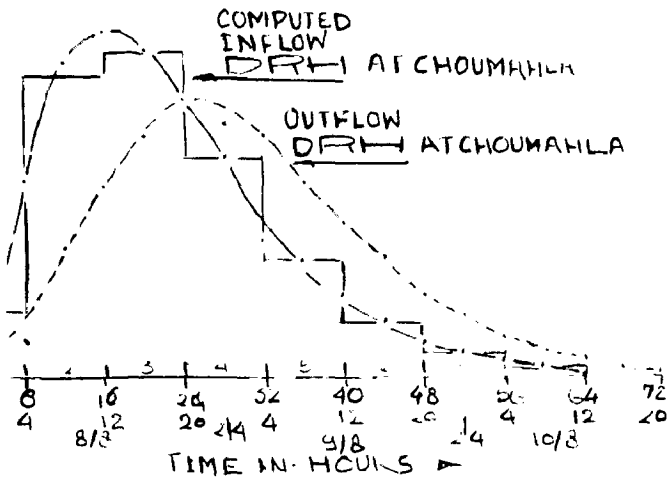 COMPUTED
INFLOW
DRH AT CHOUMAHLA
OUTFLOW
DRH AT CHOUMAHLA
3 4 5
8 16 24 32 40 48 56 64 72
4 12 20 4 12 20 4 12 20
8/8 24 9/8 24 10/8
TIME IN HOURS